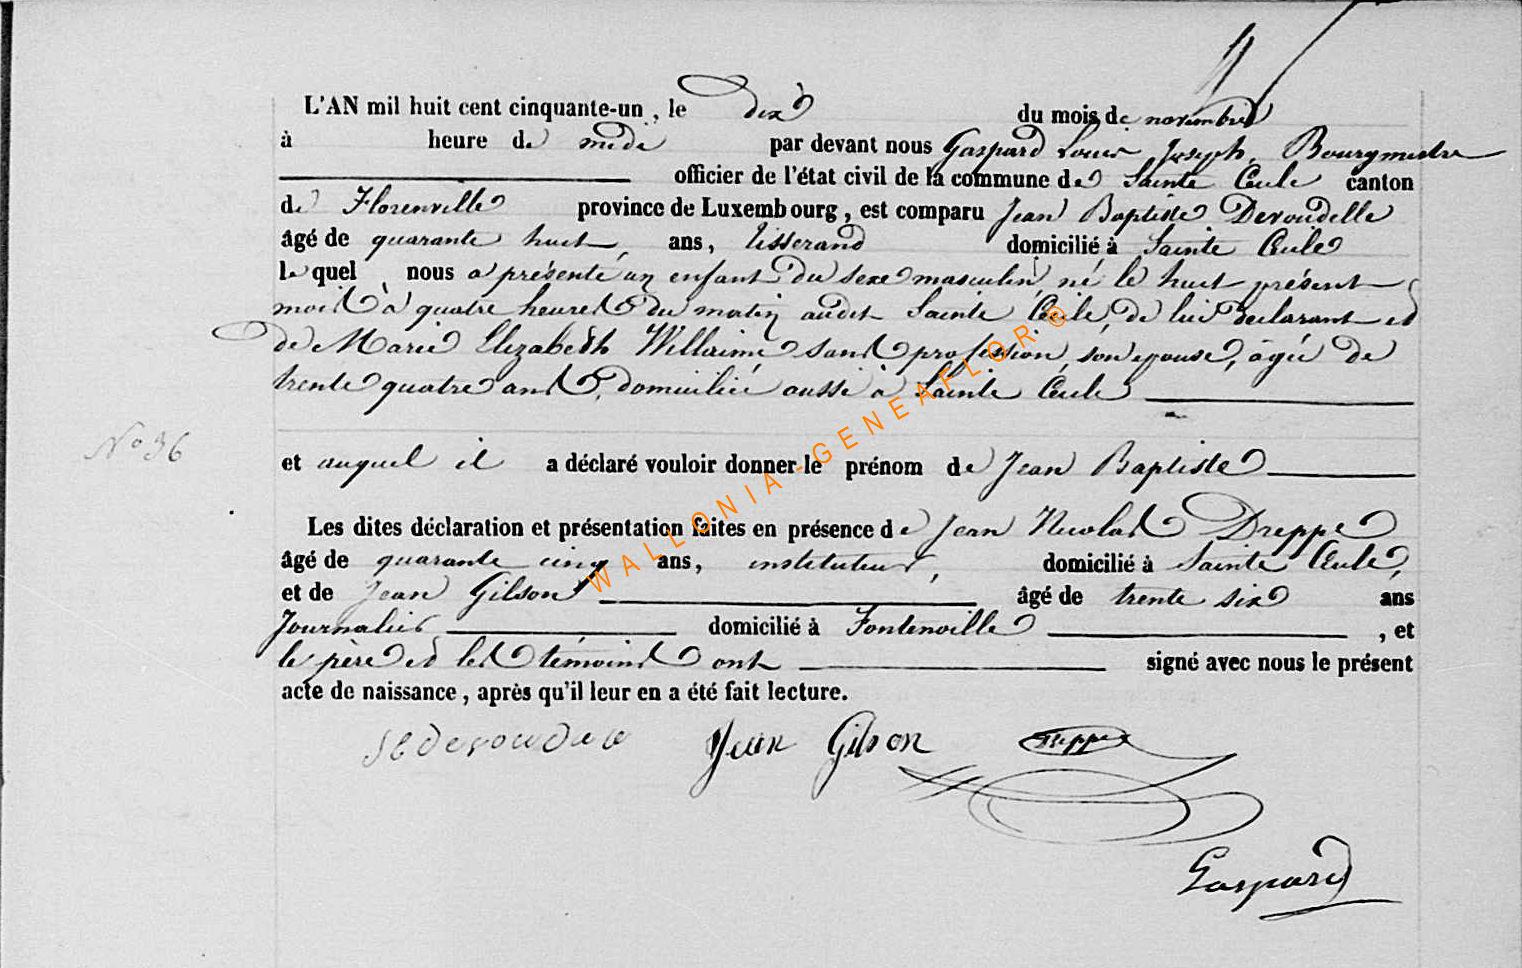 L'AN mil huit cent cinquante-un, le dix du mois de novembre
à heure de midi par devant nous Gaspard Louis Joseph Bourgmestre
officier de l'état civil de la commune de Sainte Cécile canton
de Florenville province de Luxembourg, est comparu Jean Baptiste Devoudelle
âgé de quarante huit ans, tisserand domicilié à Sainte Cécile
lequel nous a présenté un enfant du sexe masculin, né le huit présent
mois à quatre heures du matin audit Sainte Cécile, de lui déclarant et
de Marie Elizabeth Willaime sans profession, son epouse, âgée de
trente quatre ans, domiciliée aussi à Sainte Cécile
N° 36
et auquel il a déclaré vouloir donner le prénom de Jean Baptiste
Les dites déclaration et présentation faites en présence de Jean Nicolas Dreppe
âgé de quarante cinq ans, instituteur, domicilié à Sainte Cécile,
et de Jean Gilson âgé de trente six ans
Journalier domicilié à Fontenoille, et
le père et les témoins ont signé avec nous le présent
acte de naissance, après qu'il leur en a été fait lecture.
Jean Gilson Dreppe
Gaspard
WALLONIA-GENEAFLOR®